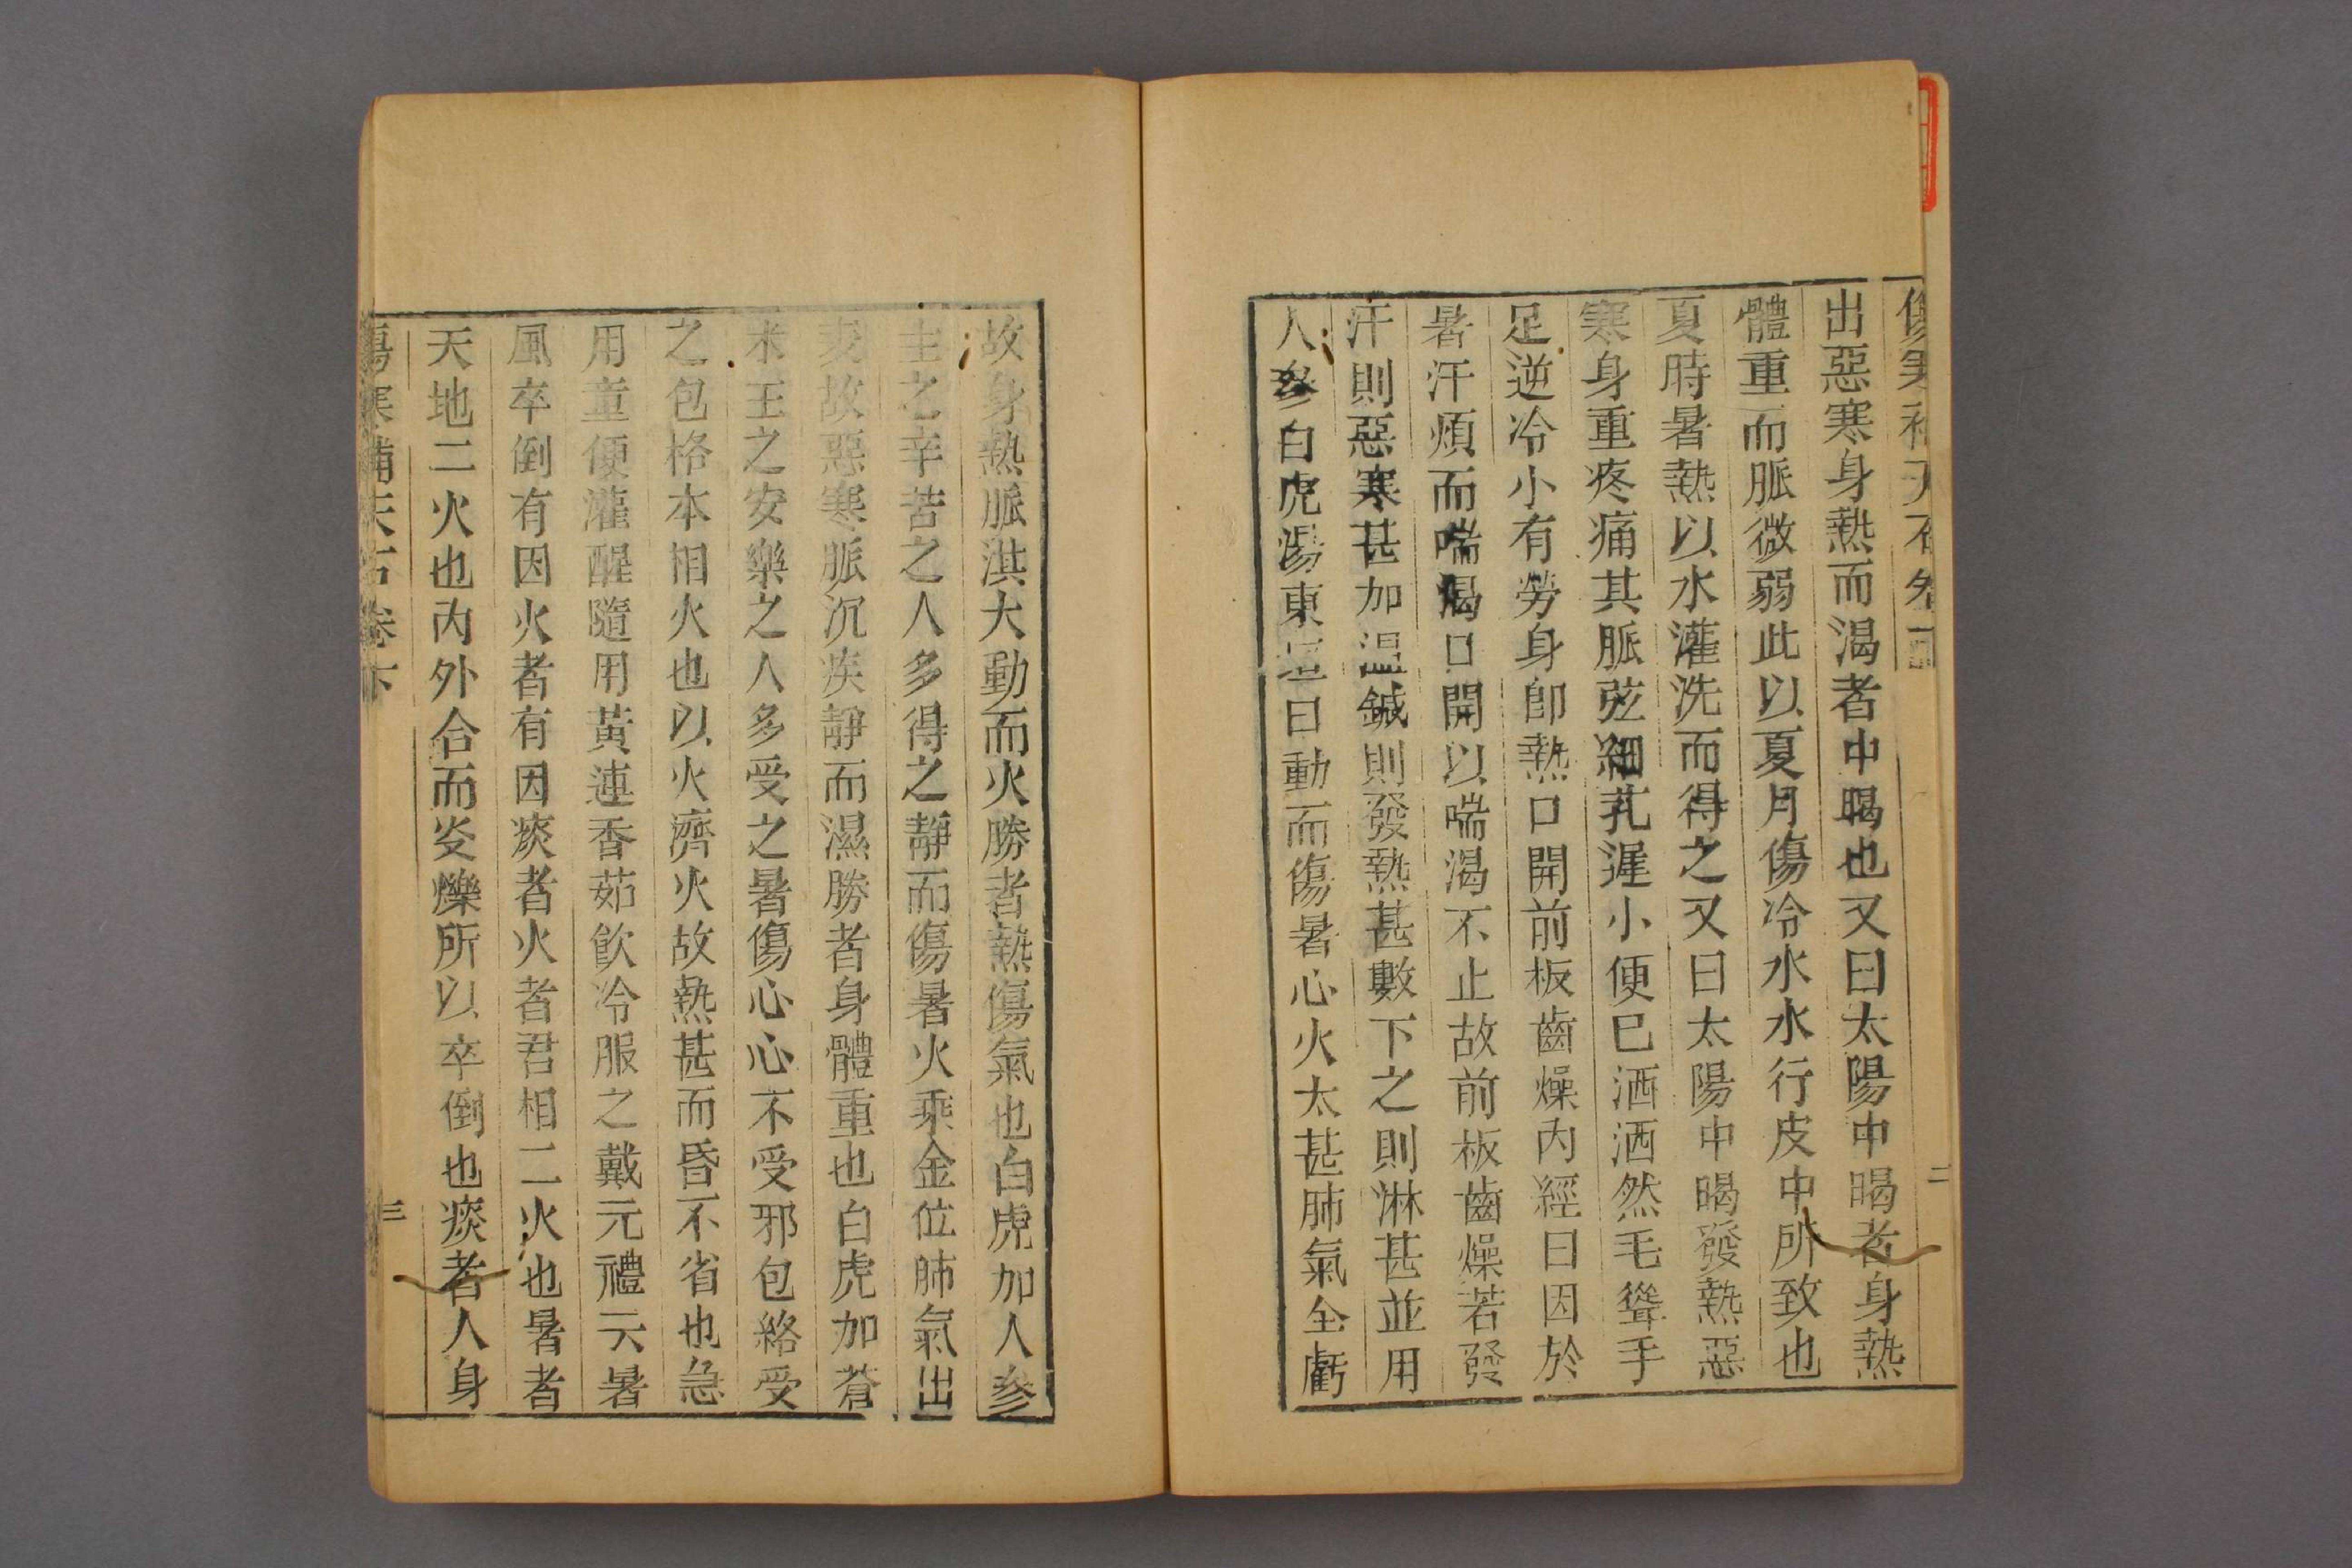 出惡寒身熱而渴者中暍也又曰太陽中暍者身熱
體重而脈微弱此以夏月傷冷水水行皮中所致也
夏時暑熱以水灌洗而得之又曰太陽中暍發熱惡
寒身重疼痛其脈弦細芤遲小便巳洒洒然毛聳手
足逆冷小有勞身卽熱口開前板齒燥內經曰因於
暑汗煩而喘渴口開以喘渴不止故前板齒燥若發
汗則惡寒甚加溫鍼則發熱甚數下之則淋甚並用
人參白虎湯東垣曰動而傷暑心火太甚肺氣全虧
二
故身熱脈洪大動而火勝者熱傷氣也白虎加人參
主之辛苦之人多得之靜而傷暑火乘金位肺氣出
表故惡寒脈沉疾靜而濕勝者身體重也白虎加蒼
术王之安樂之人多受之暑傷心心不受邪包絡受
之包格本相火也以火濟火故熱甚而昏不省也急
用童便灌醒隨用黃連香茹飲冷服之戴元禮云暑
風卒倒有因火者有因痰者火者君相二火也暑者
天地二火也內外合而炎爍所以卒倒也痰者人身
傷寒補天石卷下
三